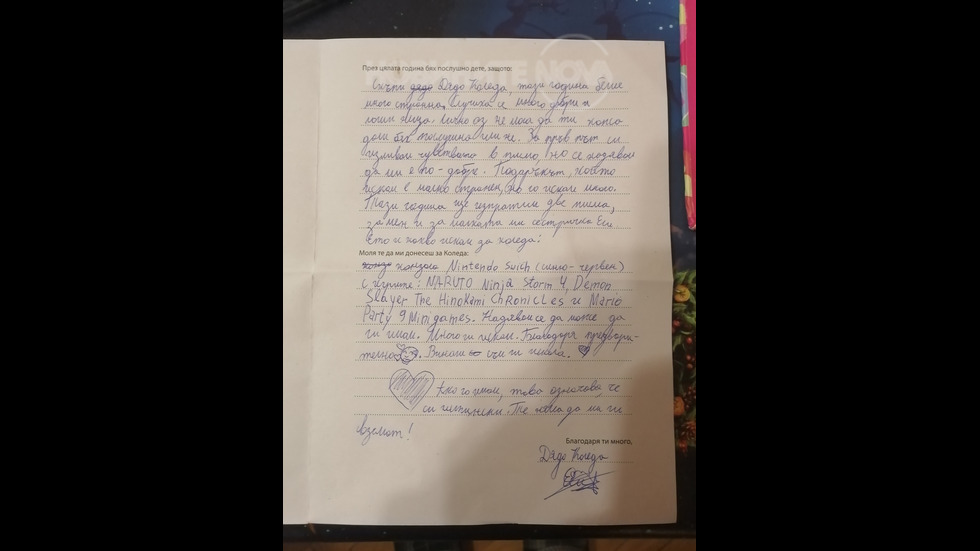 NOVA
През цялата година бях послушно дете, защото:
Скъпи дядо Дядо Коледа, тази година беше
много странна. Случиха се много добри и
лоши неща. Лично аз не мога да ти кажа
дали бях послушна или не. За пръв път си
изливам чувствата в писмо, но се надявам
да ми е по-добре. Подаръкът, който
искам е малко странен, но го искам много.
Тази година ще изпратим две писма,
за мен и за малката ми сестричка Ели.
Ето и какво искам за коледа:
Моля те да ми донесеш за Коледа:
конзола Nintendo Swich (синьо-червен)
с игрите: NARUTO Ninja Storm 4, Demon
Slayer The Hinokami CHRONICLES и Mario
Party 9 Minigames. Надявам се да може да
ги имам. Много ги искам. Благодаря предвари-
телно. Винаги съм ги искала.
Ако го имам, това означава, че
си истински. Те няма да ми ги
вземат!
Благодаря ти много,
Дядо Коледа